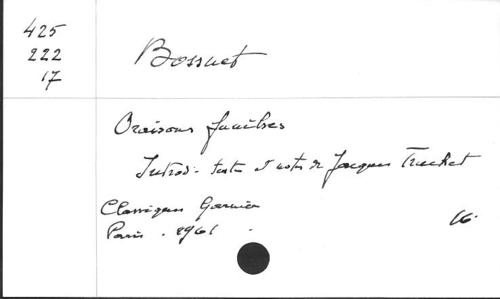 425
222
17
Bossuet
Oraisons funèbres
Introd. texte et notes de Jacques Truchet
Classiques Garnier
Paris . 1961 .
16.